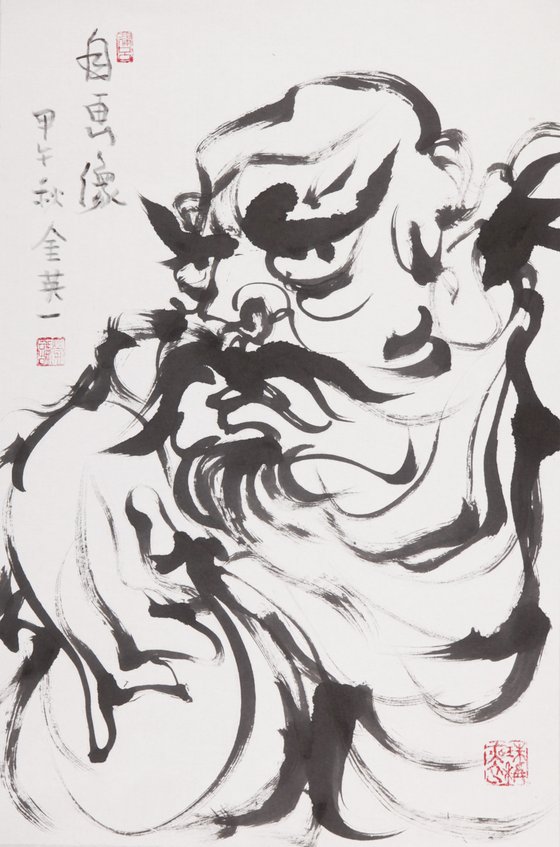 自画像
甲午秋 金英一